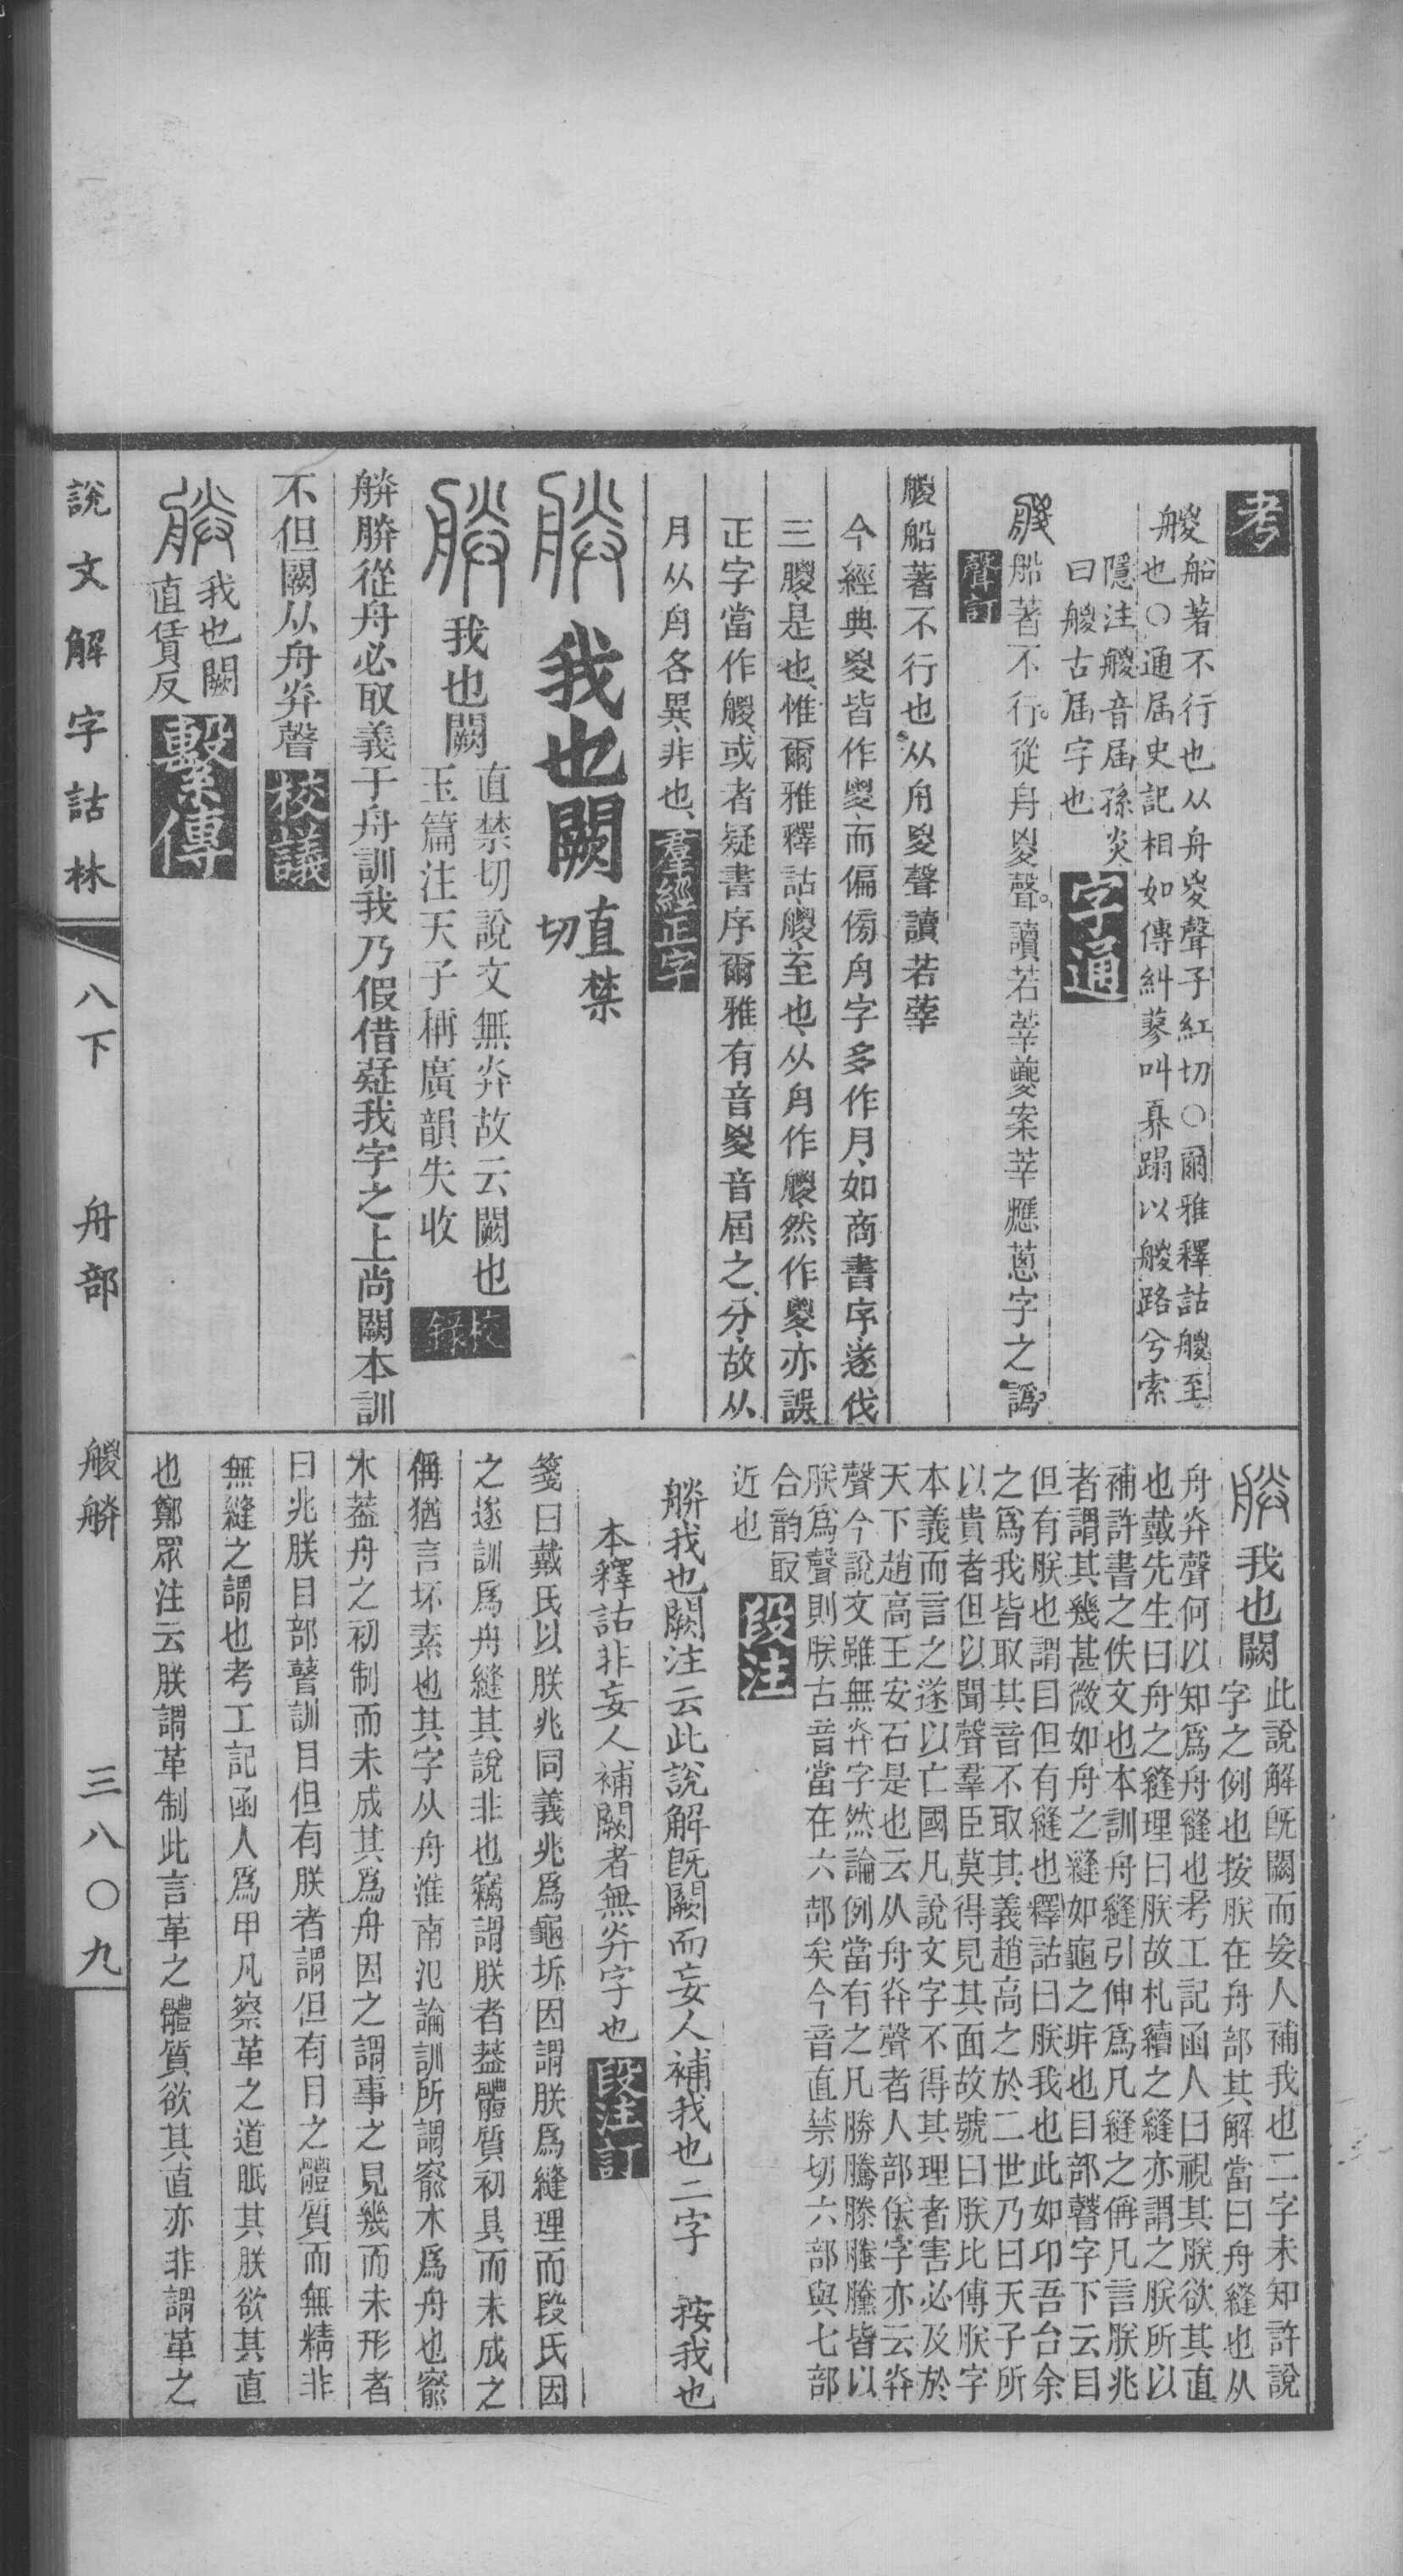 考
艐船著不行也从舟㚇聲子紅切○爾雅釋詁艐至
也○通屆史記相如傳糾蓼叫奡蹋以艐路兮索
隱注艐音屆孫炎
曰艐古屆字也
字通
艐船著不行從舟㚇聲讀若䔖夔案䔖應蔥字之譌
聲訂
艐船著不行也从舟㚇聲讀若䔖
今經典㚇皆作㚇而偏傍舟字多作月如商書序遂伐
三朡是也惟爾雅釋詁艐至也从舟作艐然作㚇亦誤
正字當作艐或者疑書序爾雅有音㚇音屆之分故从
月从舟各異非也
羣經正字
𦩎我也闕直禁
切
𦩎我也闕
直禁切說文無灷故云闕也
玉篇注天子稱廣韻失收
校錄
𦩎𦩎從舟必取義于舟訓我乃假借疑我字之上尚闕本訓
不但闕从舟灷聲
校議
𦩎
我也闕
直賃反
繫傳
𦩎我也闕
此說解旣闕而妄人補我也二字未知許說
字之例也按朕在舟部其解當曰舟縫也从
舟灷聲何以知爲舟縫也考工記函人曰視其朕欲其直
也戴先生曰舟之縫理曰朕故札續之縫亦謂之朕所以
補許書之佚文也本訓舟縫引伸爲凡縫之偁凡言朕兆
者謂其幾甚微如舟之縫如龜之𡍮也目部瞽字下云目
但有朕也謂目但有縫也釋詁曰朕我也此如卬吾台余
之爲我皆取其音不取其義趙高之於二世乃曰天子所
以貴者但以聞聲羣臣莫得見其面故號曰朕比傅朕字
本義而言之遂以亡國凡說文字不得其理者害必及於
天下趙高王安石是也云从舟灷聲者人部㑞字亦云灷
聲今說文雖無灷字然論例當有之凡勝騰滕螣黱皆以
朕爲聲則朕古音當在六部矣今音直禁切六部與七部
合韵㝡
近也
段注
𦩎我也闕注云此說解旣闕而妄人補我也二字　按我也
本釋詁非妄人補闕者無灷字也
段注訂
箋曰戴氏以朕兆同義兆爲龜坼因謂朕爲縫理而段氏因
之遂訓爲舟縫其說非也竊謂朕者葢體質初具而未成之
偁猶言坏素也其字从舟淮南氾論訓所謂窾木爲舟也窾
木葢舟之初制而未成其爲舟因之謂事之見幾而未形者
曰兆朕目部瞽訓目但有朕者謂但有目之體質而無精非
無縫之謂也考工記函人爲甲凡察革之道眡其朕欲其直
也鄭眾注云朕謂革制此言革之體質欲其直亦非謂革之
說文解字詁林
八下　舟部　艐𦩎　三八〇九